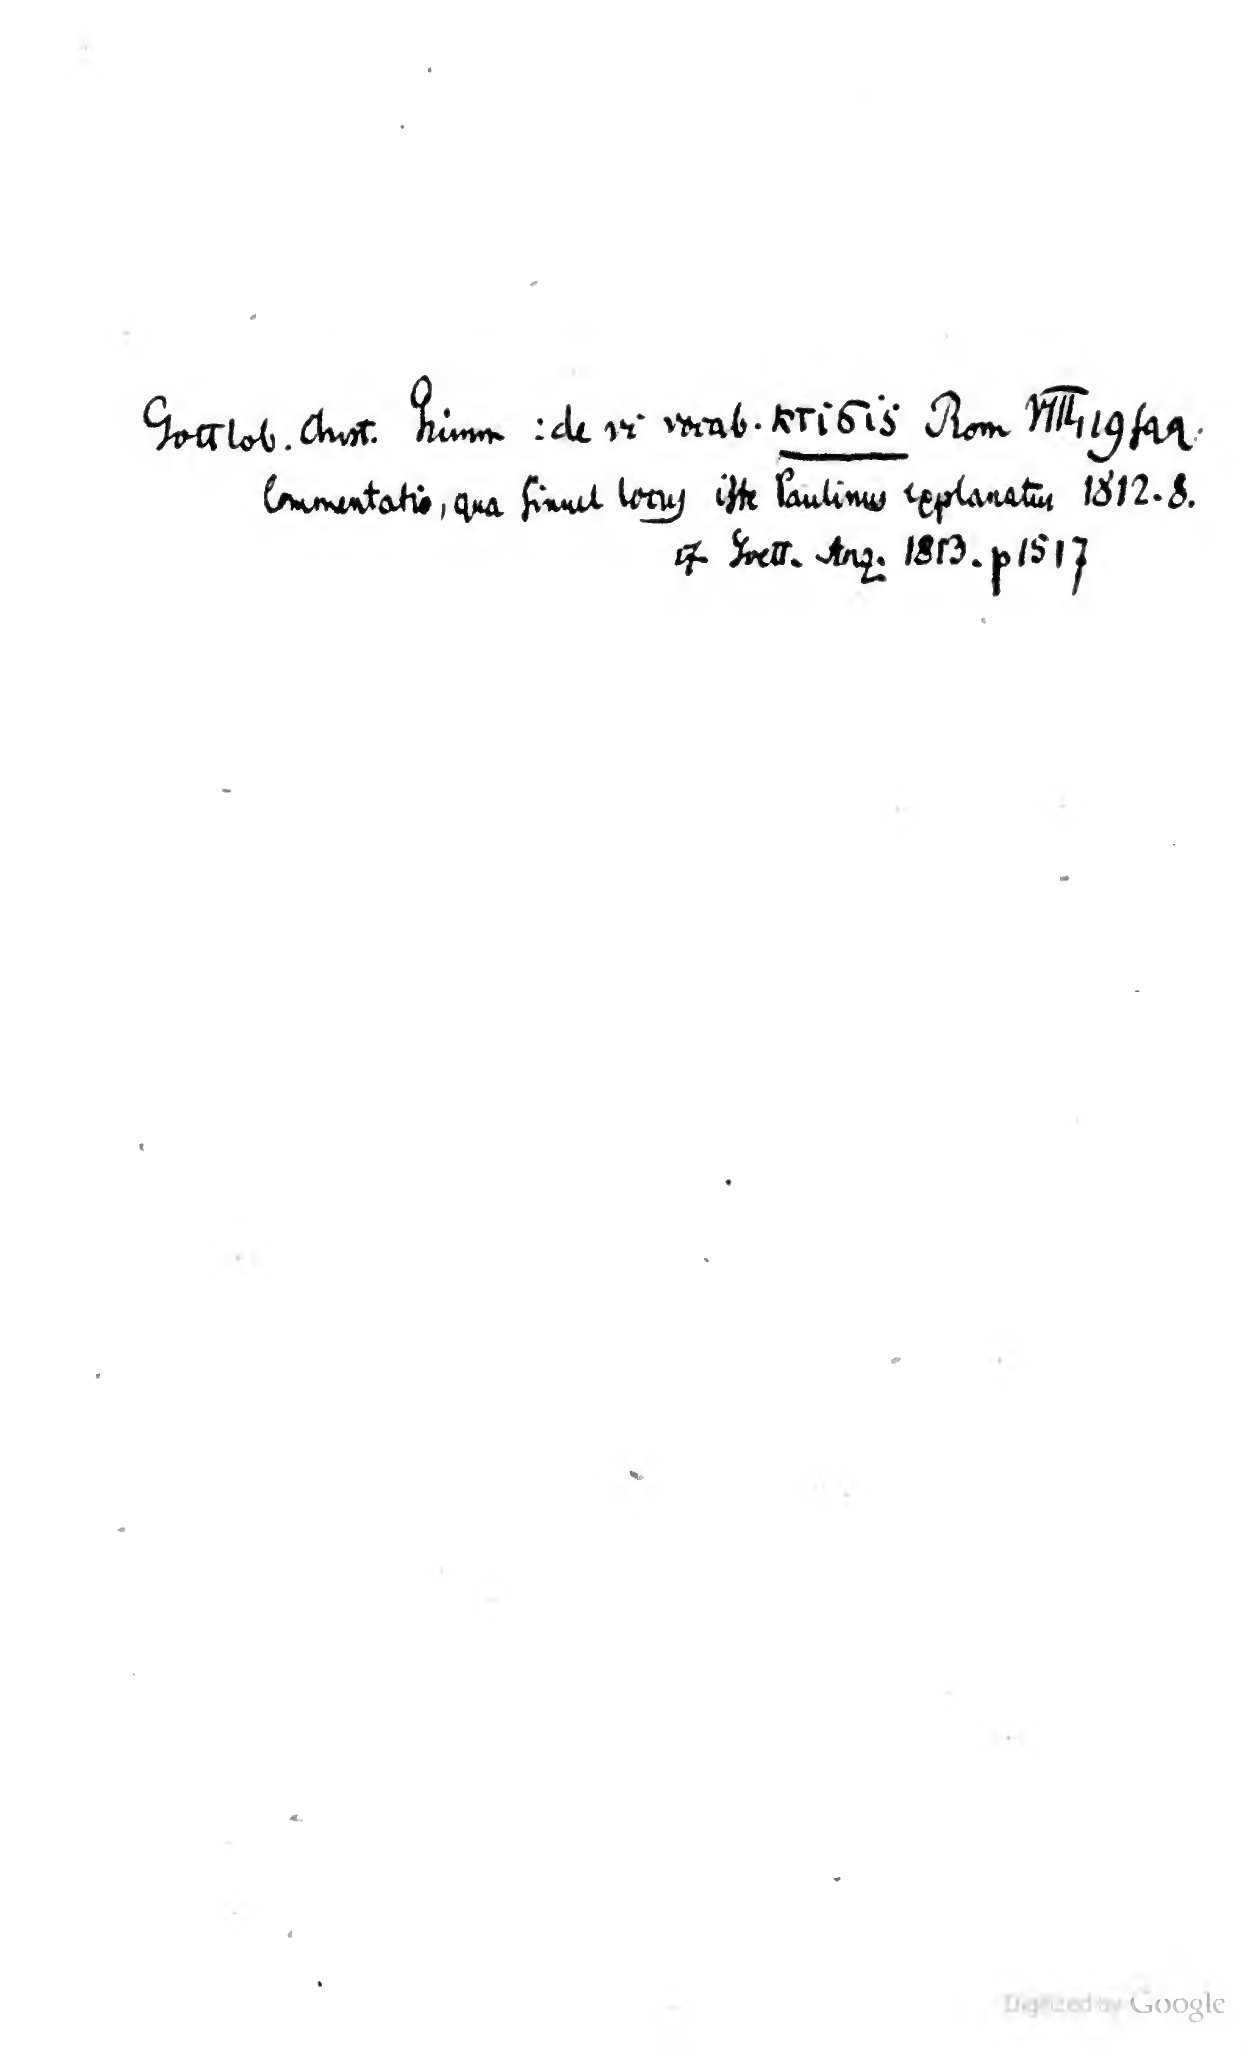 Gottlob. Christ. Grimm : de vi vocab. κτισις Rom VIII, 19 sqq.
Commentatio, qua simul locus iste Paulinus explanatur 1812. 8.
cf Goett. Anz. 1813. p 1517
Digitized by Google